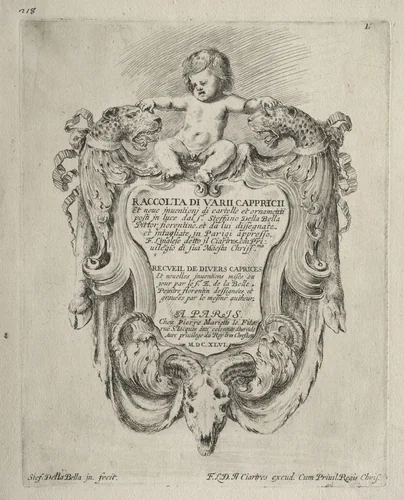 218
1.
RACCOLTA DI VARII CAPPRICII
Et noue inuentioni di cartelle et ornamenti
posti in luce dal s.r Steffano Della Bella
Pittor fiorentino, et da lui disegnate,
et intagliate, in Parigi appresso,
F. L. D. detto il Ciartres, con Pri
uilegio di sua Maestà Chriss.ma
RECVEIL DE DIVERS CAPRICES
Et nouelles inuentions mises au
jour par le S.r E. de la Belle
Peintre florentin dessignées et
grauées par le mesme autheur,
A PARIS
Chez Pierre Mariette le Filz
rue S.t Jacques aux
Auec priuilege du Roy tres Chrestien
M.DC.XLVI.
Stef. Della Bella in. fecit.
F. L. D. Il Ciartres excud. Cum Priuil. Regis Chris.